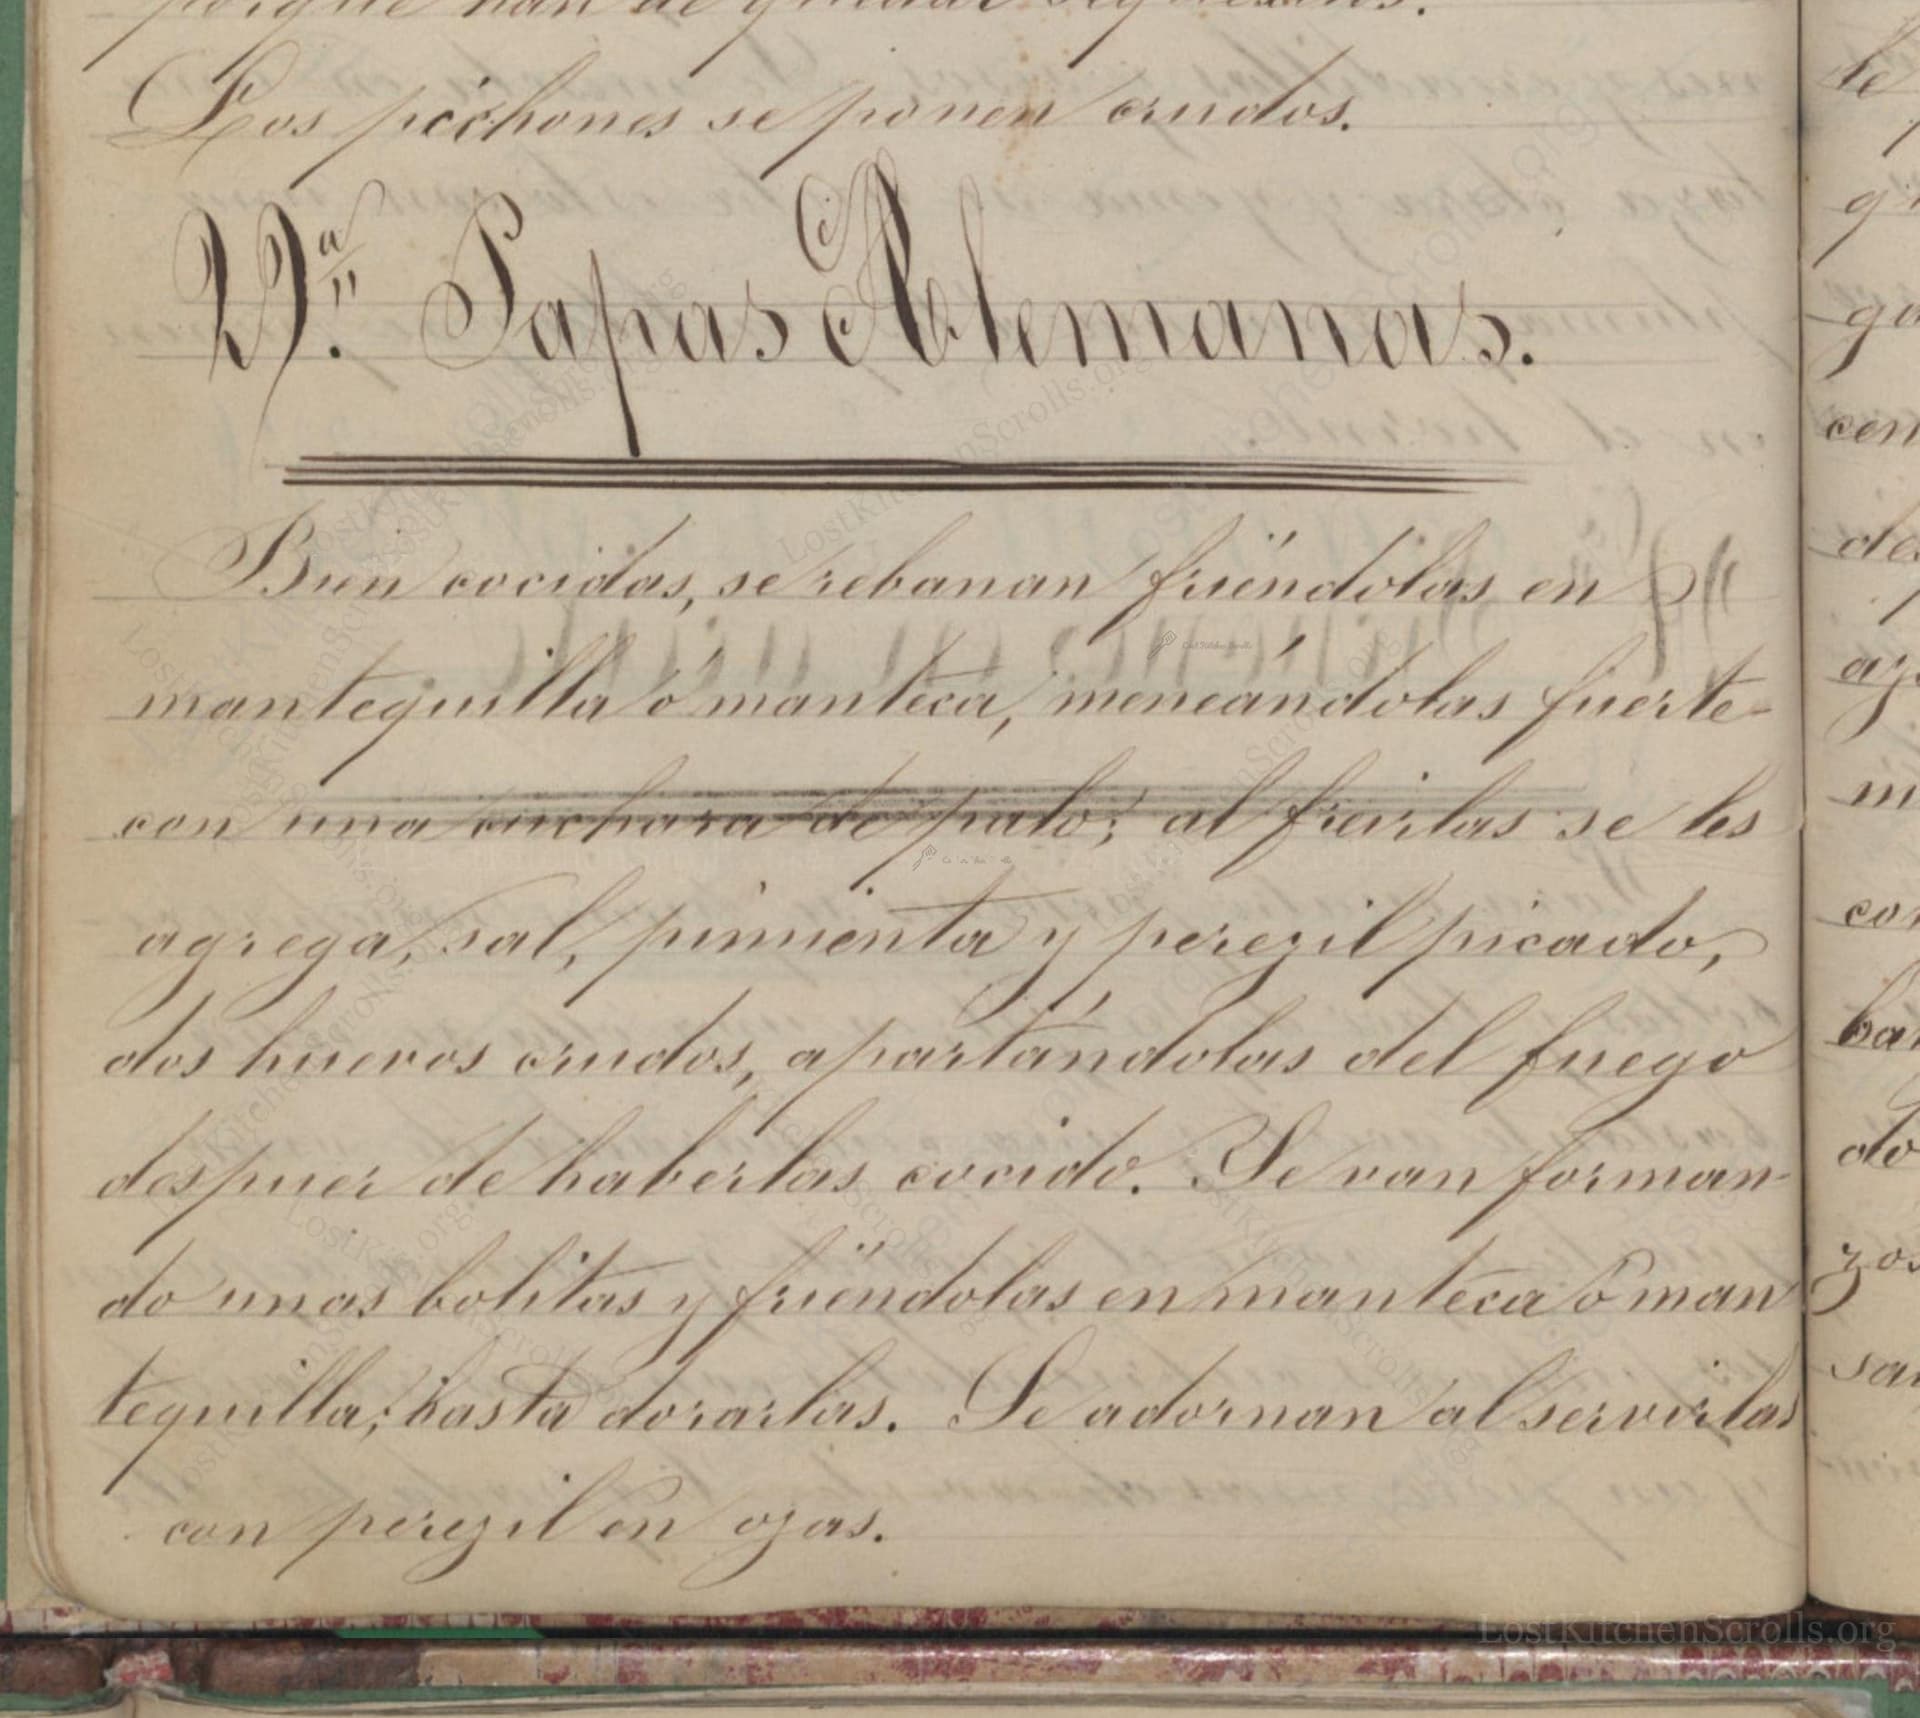 porque han de quedar
Los pichones se ponen crudos.
V.ª Papas Alemanas.
Bien cocidas, se rebanan friéndolas en
mantequilla ó manteca, meneándolas fuerte-
con una cuchara de palo; al freirlas se les
agrega, sal, pimienta y peregil picado,
dos huevos crudos, apartándolas del fuego
despues de haberlas cocido. Se van forman-
do unas bolitas y friéndolas en manteca ó man
tequilla; hasta dorarlas. Se adornan al servirlas
con peregil en ojas.
LostKitchenScrolls.org